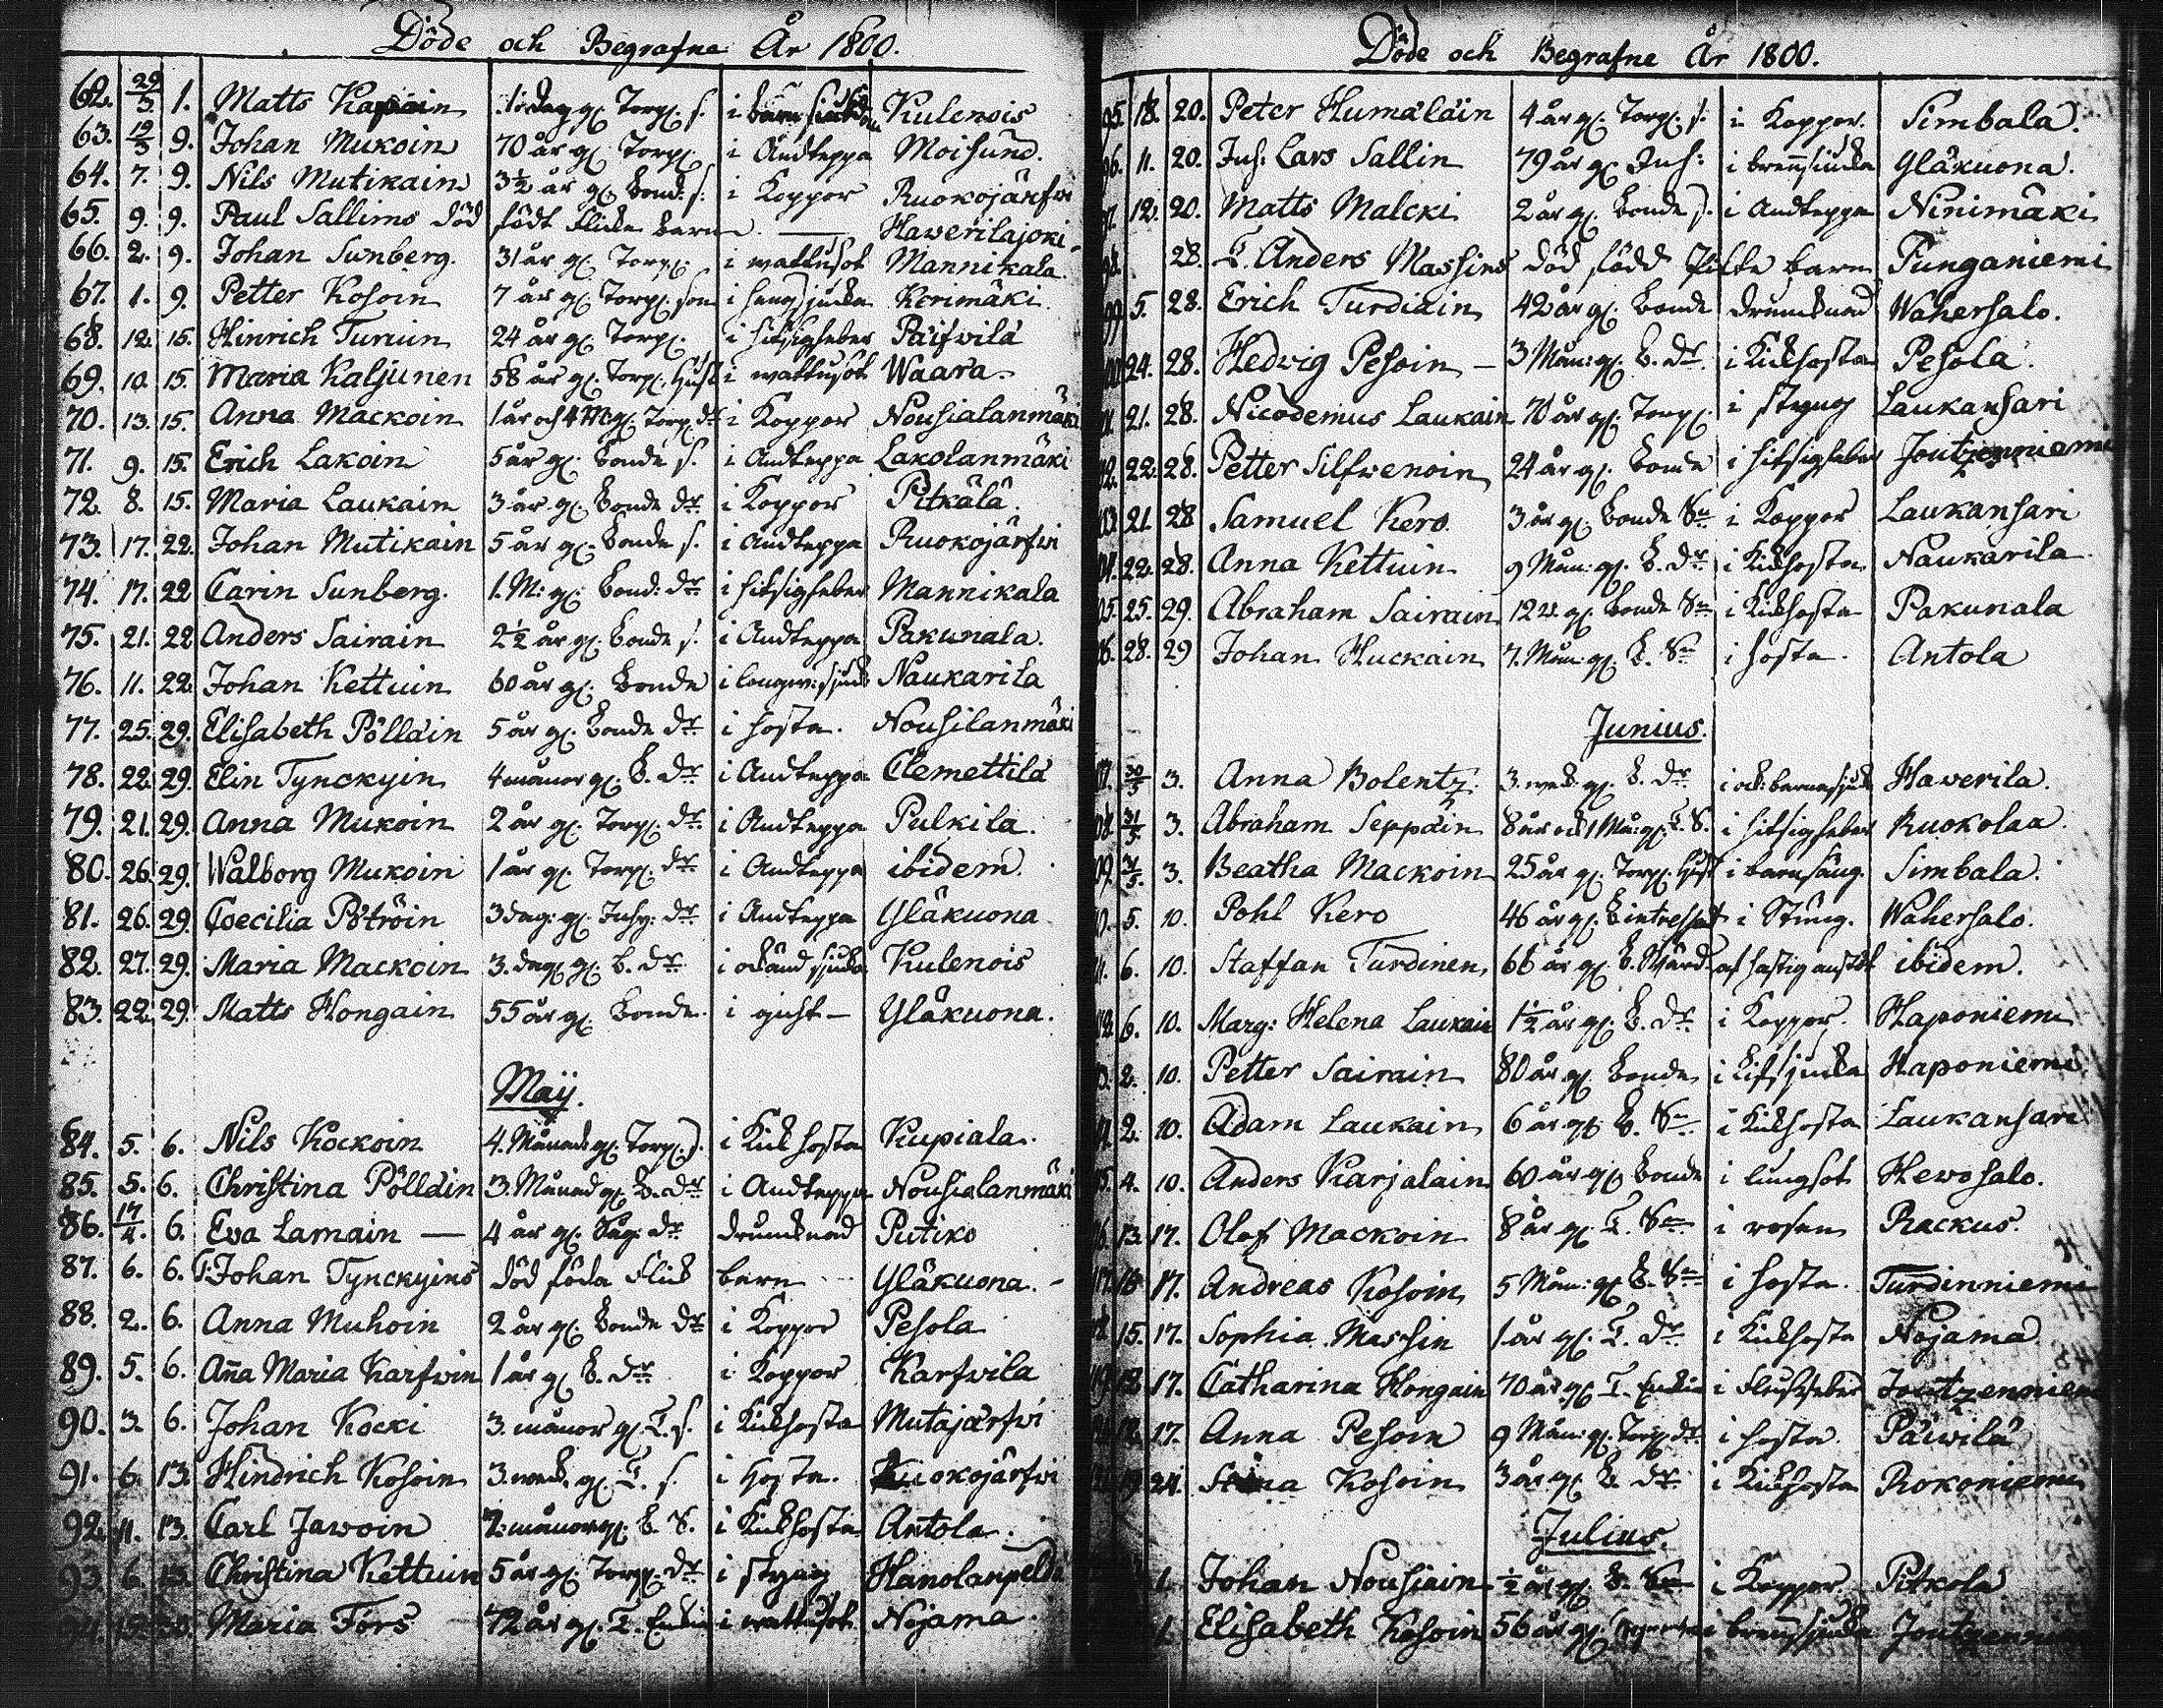 Döde och Begrafne År 1800.
62. 29/3 1. Matts Kapiain 1 dag gl. Torp. s. i Kulenois
63. 19/3 9. Johan Mukoin 70 år gl. Torp. i Andteppa Moisund.
64. 7. 9. Nils Mutikain 3½ år gl. bond. s. i Koppor Ruokojärfwi
65. 9. 9. Paul Sallims död födt Flicke barn. — Hawerilajoki
66. 2. 9. Johan Sunberg. 31 år gl. Torp. i wattusot Mannikala.
67. 1. 9. Petter Kosoin 7 år gl. Torp. son i Kerimäki
68. 12. 15. Hinrich Turuin 24 år gl. Torp. i hitsigfeber Päifwilä
69. 10. 15. Maria Kaljunen 58 år gl. Torp. Hust. i wattusot Waara.
70. 13. 15. Anna Mackoin 1 år och 4 M. gl. Torp. dr i Koppor Nousialanmäki
71. 9. 15. Erich Lakoin 5 år gl. bonde s. i Andteppa Lakolanmäki
72. 8. 15. Maria Laukain 3 år gl. bonde dr. i Koppor Pitkälä.
73. 17. 22. Johan Mutikain 5 år gl. bonde s. i Andteppa Ruokojärfwi
74. 17. 22 Carin Sunberg. 1. M: gl. bond: dr i hitsigfeber Mannikala
75. 21. 22 Anders Sairain 2½ år gl. bonde s. i Andteppa Pakunala.
76. 11. 22. Johan Kettuin 60 år gl. bonde i Naukarila
77. 25. 29. Elisabeth Pöllain 5 år gl. bonde dr. i hosta. Nousilanmäki
78. 22. 29. Elin Tynckyin 4 månor gl. B. dr. i Andteppa Clemettilä
79. 21. 29. Anna Mukoin 2 år gl. Torp. dr. i Andteppa Pulkila.
80. 26. 29. Walborg Mukoin 1 år gl. Torp. dr. i Andteppa ibidem.
81. 26. 29. Coecilia Pöträin 3 dag: gl. Inhy: dr. i Andteppa Yläkuona
82. 27. 29. Maria Mackoin 3. dag. gl. b. dr. i okänd sjuka Kulenois
83. 22. 29. Matts Hongain 55 år gl. bonde. i gicht — Yläkuona.
Maij.
84. 5. 6. Nils Kockoin 4. Månad gl. Torp. s. i Kikhosta Kupiala.
85. 5. 6. Christina Pölläin 3. Månad gl. B. dr i Andteppa Nousialanmäki
86. 17/4. 6. Eva Lamain — 4 år gl. dr drunknad Putiko
87. 6. 6. T. Johan Tynckyins död föda Flick barn Yläkuona. -
88. 2. 6. Anna Muhoin 2 år gl. bonde dr i Koppor Pesola
89. 5. 6. Aña Maria Karfwin 1 år gl B. dr. i Koppor Karfvila
90. 3. 6. Johan Kocki 3. månor gl. T. s. i Kikhosta Mutajärfvi
91. 6. 13. Hindrich Kosoin 3. wek. gl. T. s. i Hosta. Ruokojärfvi
92. 11. 13. Carl Jawoin 7. månor gl. B. S. i Kikhosta Antola.
93. 6. 13. Christina Kettuin 5 år gl. Torp. dr i styng Hanolanpeldo
94. 30. Maria Fors 72 år gl. T. Enkia i wattusot Nojama.
Döde och Begrafne År 1800.
95. 18. 20. Peter Humaläin 4 år gl. Torp. s: i Koppor. Simbala.
96. 11. 20. Inh: Lars Sallin 79 år gl Inh: i brensiuka Yläkuona.
97. 12. 20. Matts Malcki 2 år gl. bonde s. i Andteppa Ninimäki
98. 28. T. Anders Massins död född barn Punganiemi
99. 5. 28. Erich Turdiain 42 år gl. bonde drunknad Wahersalo.
24. 28. Hedvig Pesoin — 3 Mån: gl. B. dr. i Kikhosta Pesola.
21. 28. Nicodemus Laukain 70 år gl. Torp. i styng Laukansari
22. 28. Petter Silfwenoin 24 år gl. bonde i hitsigfeber Joutzenniemi
21 28 Samuel Kero. 3 år gl. bonde Sn i Koppor Laukansari
22. 28. Anna Kettuin 9 Mån: gl. B. dr. i Kikhosta Naukarila
25. 29. Abraham Sairain 12 w. gl. bonde Sn i Kikhosta Pakunala
28. 29 Johan Huckain 7. Mån: gl. B. Sn i hosta. Antola
Junius.
30/5 3. Anna Bolentz. 3. wek. gl. B. dr. i Hawerila.
31/5 3. Abraham Seppäin 8 år och 1 Mån: gl. T. S. i hitsigfeber Ruokolax.
31/5. 3. Beatha Mackoin 25 år gl. Torp. Hust i barnsäng. Simbala.
5. 10. Pohl Kero 46 år gl. i Stÿng. Wahersalo.
6. 10. Staffan Turdinen, 66 år gl. ibidem.
6. 10. Marg: Helena Laukain 1½ år gl. B. dr. i Koppor. Haponiemi
2. 10. Petter Sairain 80 år gl. bonde i Haponiemi.
2. 10. Adam Laukain 6 år gl. B. Sn. i Kikhosta Laukansari
4. 10. Anders Karjalain 60 år gl. bonde i lungsot Hewosalo.
13. 17. Olof Mackoin 8 år gl. T. Sn i rosen Rackus.
16 17. Andreas Kosoin 5 Mån: gl. B. Sn i hosta. Turdinniemi
15. 17. Sophia Massin 1 år gl. T. dr. i Kikhosta Nojama
12. 17. Catharina Hongain 70 år gl. T. Enkia i Joutzenniemi
12. 17. Anna Pesoin 9 Mån: gl. Torp dr. i hosta. Päiwilä
19. 24. Stina Kosoin 3 år gl. B. dr. i Kikhosta Rokoniemi
Julius.
1. Johan Nousiain ½ år gl. B. Sn i Koppor Pitkola
1. Elisabeth Kosoin 56 år gl. i brensjuka Joutzenniemi